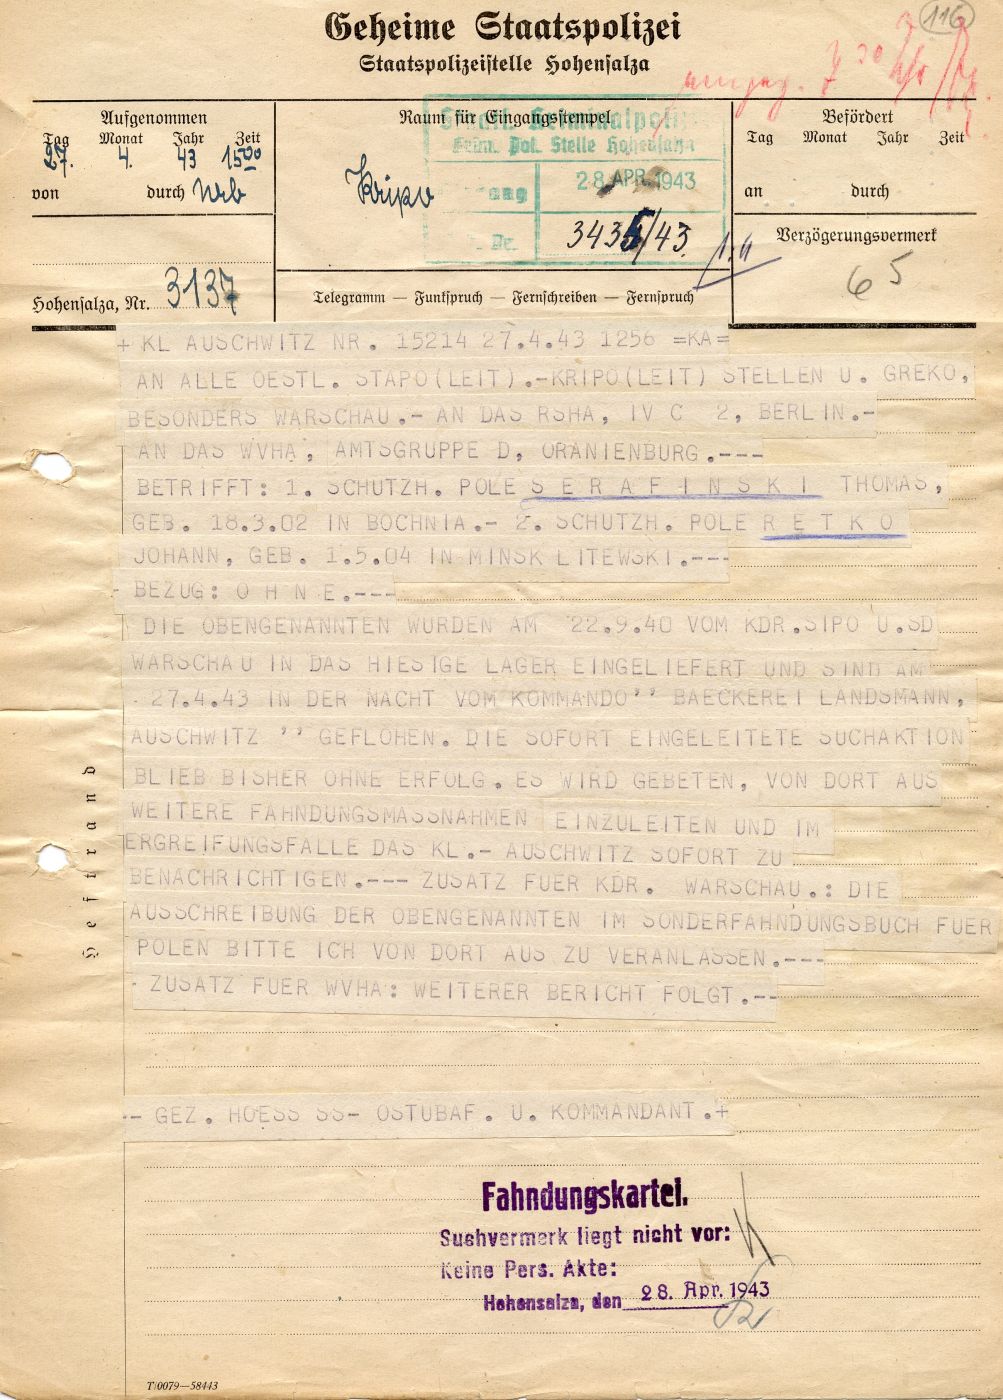 116
Geheime Staatspolizei
Staatspolizeistelle Hohensalza
Aufgenommen
Tag Monat Jahr Zeit
27. 4. 43 1500
von durch
Raum für Eingangsstempel
Kripo
Staatl. Kriminalpolizei
Krim. Pol. Stelle Hohensalza
28. APR. 1943
/43.
Befördert
Tag Monat Jahr Zeit
an durch
Verzögerungsvermerk
65
Hohensalza, Nr. 3137
Telegramm — Funkspruch — Fernschreiben — Fernspruch
+ KL AUSCHWITZ NR. 15214 27.4.43 1256 =KA=
AN ALLE OESTL. STAPO(LEIT).-KRIPO(LEIT) STELLEN U. GREKO,
BESONDERS WARSCHAU.- AN DAS RSHA, IV C 2, BERLIN.-
AN DAS WVHA, AMTSGRUPPE D, ORANIENBURG.---
BETRIFFT: 1. SCHUTZH. POLE S E R A F I N S K I THOMAS,
GEB. 18.3.02 IN BOCHNIA.- 2. SCHUTZH. POLE R E T K O
JOHANN, GEB. 1.5.04 IN MINSK LITEWSKI.---
- BEZUG: O H N E.---
DIE OBENGENANNTEN WURDEN AM 22.9.40 VOM KDR.SIPO U.SD
WARSCHAU IN DAS HIESIGE LAGER EINGELIEFERT UND SIND AM
27.4.43 IN DER NACHT VOM KOMMANDO'' BAECKEREI LANDSMANN,
AUSCHWITZ '' GEFLOHEN. DIE SOFORT EINGELEITETE SUCHAKTION
BLIEB BISHER OHNE ERFOLG. ES WIRD GEBETEN, VON DORT AUS
WEITERE FAHNDUNGSMASSNAHMEN EINZULEITEN UND IM
ERGREIFUNGSFALLE DAS KL.- AUSCHWITZ SOFORT ZU
BENACHRICHTIGEN.--- ZUSATZ FUER KDR. WARSCHAU.: DIE
AUSSCHREIBUNG DER OBENGENANNTEN IM SONDERFAHNDUNGSBUCH FUER
POLEN BITTE ICH VON DORT AUS ZU VERANLASSEN.---
- ZUSATZ FUER WVHA: WEITERER BERICHT FOLGT.--
-- GEZ. HOESS SS- OSTUBAF. U. KOMMANDANT.+
Heftrand
Fahndungskartei.
Suchvermerk liegt nicht vor:
Keine Pers. Akte:
Hohensalza, den 28. Apr. 1943
T/0079—58443